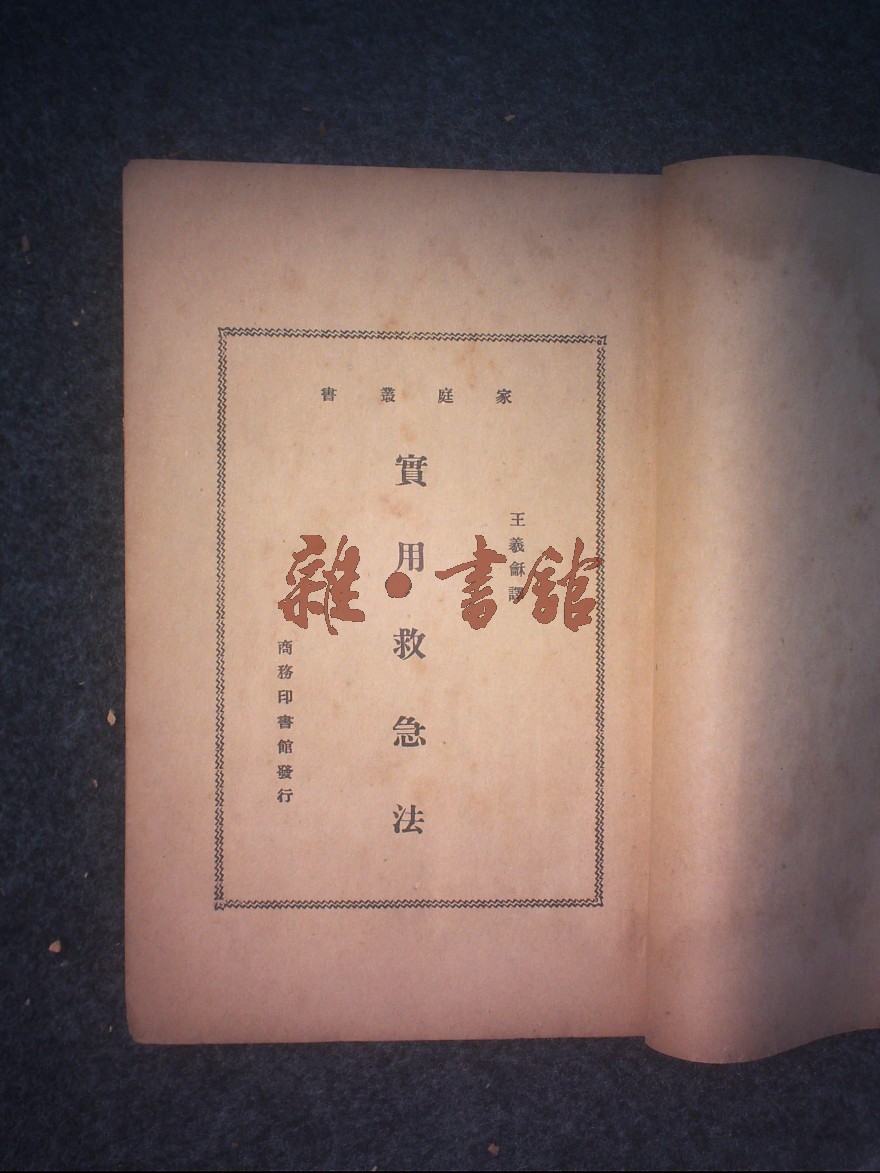 家庭叢書
王羲龢譯
實用救急法
商務印書館發行
雜·書館